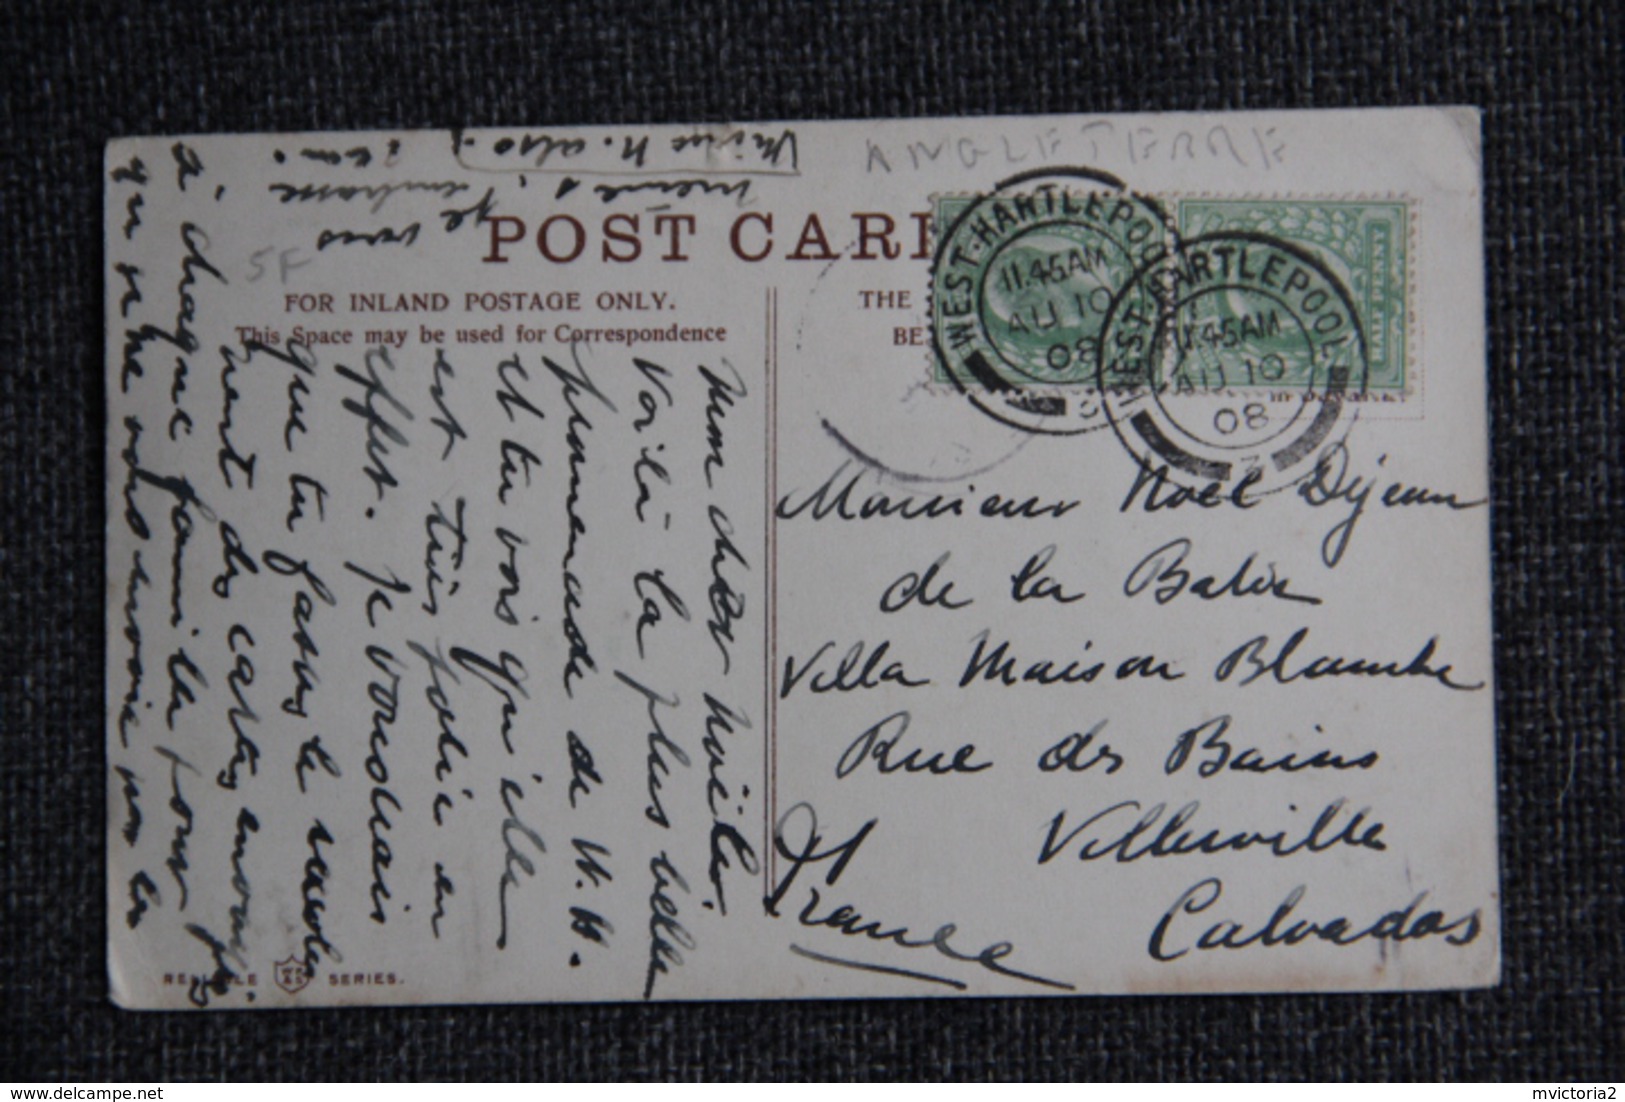 ANGLETERRE
POST CAR
5F
FOR INLAND POSTAGE ONLY.
This Space may be used for Correspondence
THE
BE
WEST-HARTLEPOOL
11.45AM
AU 10
08
WEST-HARTLEPOOL
11.45AM
AU 10
08
3
HALF PENNY
Mon cher Noël
Voilà la plus belle
promenade de W. H.
et tu vois qu'elle
est très jolie en
effet. Je voudrais
que tu fasses le
des cartes
à chaque famille pour
qu'on ne vous envoie pas la
même,
Je vous
embrasse
Monsieur Noël Dejean
de la Batie
Villa Maison Blanche
Rue des Bains
Villerville
Calvados
France
RELIABLE WR &S SERIES.
delcampe.net
mvictoria2